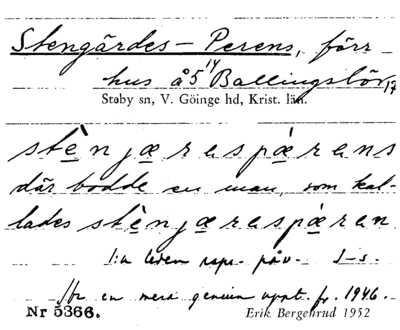 Stengärdes-Perens, förr
hus å 5¹⁴ Ballingslöv,17
Støby sn, V. Göinge hd, Krist. län.
stè̱njæ̱ræspǽ̱ræns
där bodde en man, som kal-
lades stè̱njæ̱ræspǽ̱ræn
1:a leden repr. påv. S-s.
för en mera genuin uppt. fr. 1946.
Nr 5366. Erik Bergenrud 1952